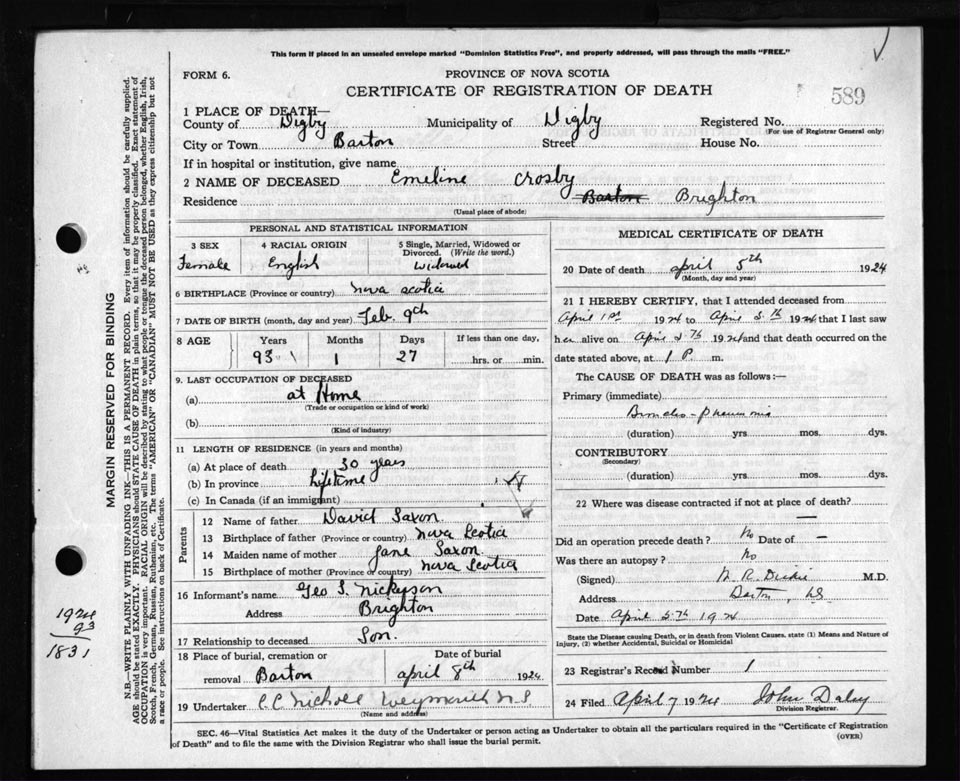 This form if placed in an unsealed envelope marked "Dominion Statistics Free", and properly addressed, will pass through the mails "FREE."
FORM 6.
PROVINCE OF NOVA SCOTIA
CERTIFICATE OF REGISTRATION OF DEATH
589
1 PLACE OF DEATH—
County of Digby Municipality of Digby Registered No.
(For use of Registrar General only)
City or Town Barton Street House No.
If in hospital or institution, give name
2 NAME OF DECEASED Emeline Crosby
Residence Barton Brighton
(Usual place of abode)
PERSONAL AND STATISTICAL INFORMATION
3 SEX 4 RACIAL ORIGIN 5 Single, Married, Widowed or Divorced. (Write the word.)
Female English Widowed
6 BIRTHPLACE (Province or country) Nova Scotia
7 DATE OF BIRTH (month, day and year) Feb. 9th
8 AGE Years Months Days If less than one day,
93 1 27 hrs. or min.
9. LAST OCCUPATION OF DECEASED
(a) at Home
(Trade or occupation or kind of work)
(b)
(Kind of industry)
11 LENGTH OF RESIDENCE (in years and months)
(a) At place of death 30 years
(b) In province Lifetime
(c) In Canada (if an immigrant)
Parents
12 Name of father David Saxon
13 Birthplace of father (Province or country) Nova Scotia
14 Maiden name of mother Jane Saxon
15 Birthplace of mother (Province or country) Nova Scotia
16 Informant's name Geo S.
Address Brighton
17 Relationship to deceased Son.
18 Place of burial, cremation or Date of burial
removal Barton April 8th 1924
19 Undertaker C.C. Nicholl Weymouth N.S
(Name and address)
MEDICAL CERTIFICATE OF DEATH
20 Date of death April 5th 1924
(Month, day and year)
21 I HEREBY CERTIFY, that I attended deceased from
April 1st 1924 to April 5th 1924 that I last saw
her alive on April 5th 1924 and that death occurred on the
date stated above, at 1 P. m.
The CAUSE OF DEATH was as follows:—
Primary (immediate)
Broncho-pneumonia
(duration) yrs mos. dys.
CONTRIBUTORY
(Secondary)
(duration) yrs. mos. dys.
22 Where was disease contracted if not at place of death?
—
Did an operation precede death? No Date of —
Was there an autopsy? No
(Signed) M.D.
Address Barton, NS
Date April 5th 1924
State the Disease causing Death, or in death from Violent Causes, state (1) Means and Nature of
Injury, (2) whether Accidental, Suicidal or Homicidal
23 Registrar's Record Number 1
24 Filed April 7 1924 John Daley
Division Registrar.
SEC. 46—Vital Statistics Act makes it the duty of the Undertaker or person acting as Undertaker to obtain all the particulars required in the "Certificate of Registration
of Death" and to file the same with the Division Registrar who shall issue the burial permit.
(OVER)
MARGIN RESERVED FOR BINDING
N.B.—WRITE PLAINLY WITH UNFADING INK—THIS IS A PERMANENT RECORD. Every item of information should be carefully supplied.
AGE should be stated EXACTLY. PHYSICIANS should STATE CAUSE OF DEATH in plain terms, so that it may be properly classified. Exact statement of
OCCUPATION is very important. RACIAL ORIGIN will be described by stating to what people or tongue the deceased person belonged, whether English, Irish,
Scotch, French, German, Russian, Ruthenian, etc. The terms "AMERICAN" OR "CANADIAN" MUST NOT BE USED as they express citizenship but not
a race or people. See instructions on back of Certificate.
1924
93
1831